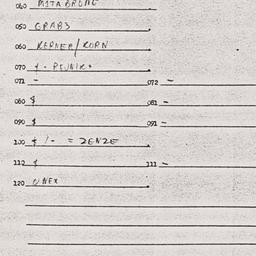 040 MITABRONC
050 GRABS
060 KERNER/KORN
070 $ -
071 - 072 -
080 $ 081 -
090 $ 091 -
100 $ /- = ZENZE
110 $ 111 -
120